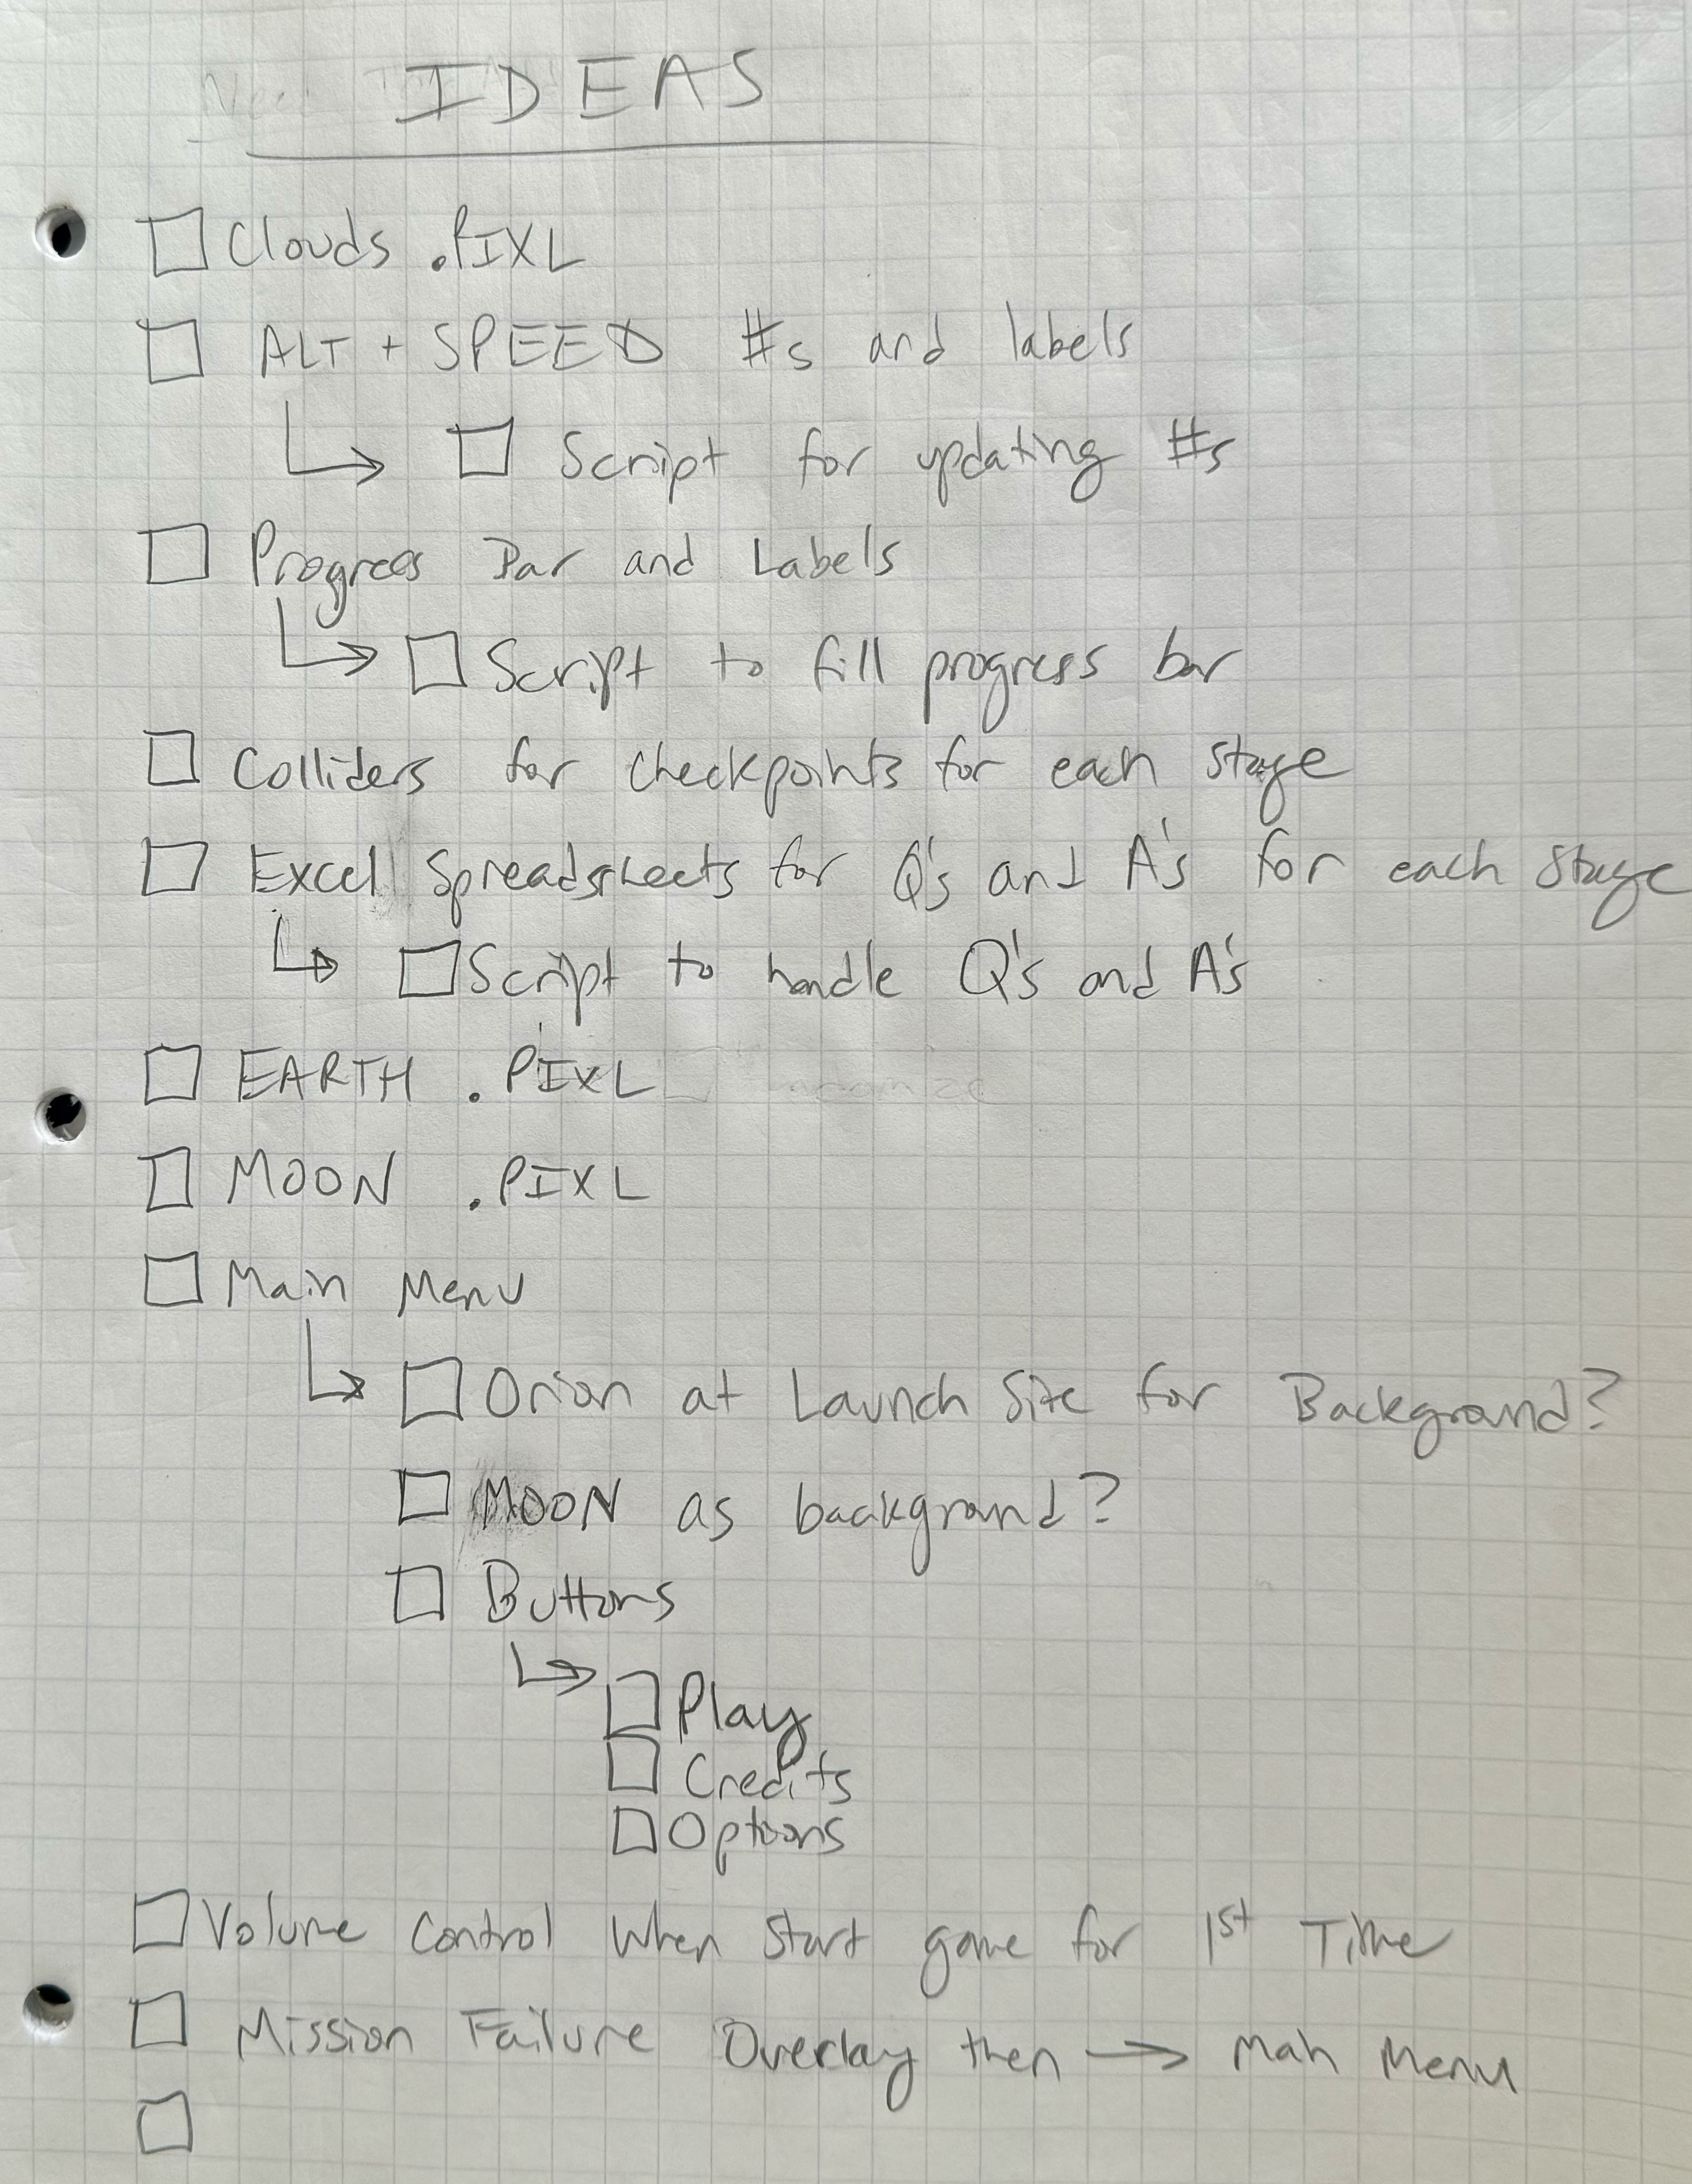 IDEAS
Clouds .PIXL
ALT + SPEED #s and labels
Script for updating #s
Progress Bar and Labels
Script to fill progress bar
Colliders for checkpoints for each stage
Excel Spreadsheets for Q's and A's for each stage
Script to handle Q's and A's
EARTH .PIXL
MOON .PIXL
Main Menu
Orion at Launch Site for Background?
MOON as background?
Buttons
Play
Credits
Options
Volume Control When Start game for 1st Time
Mission Failure Overlay then → Main Menu